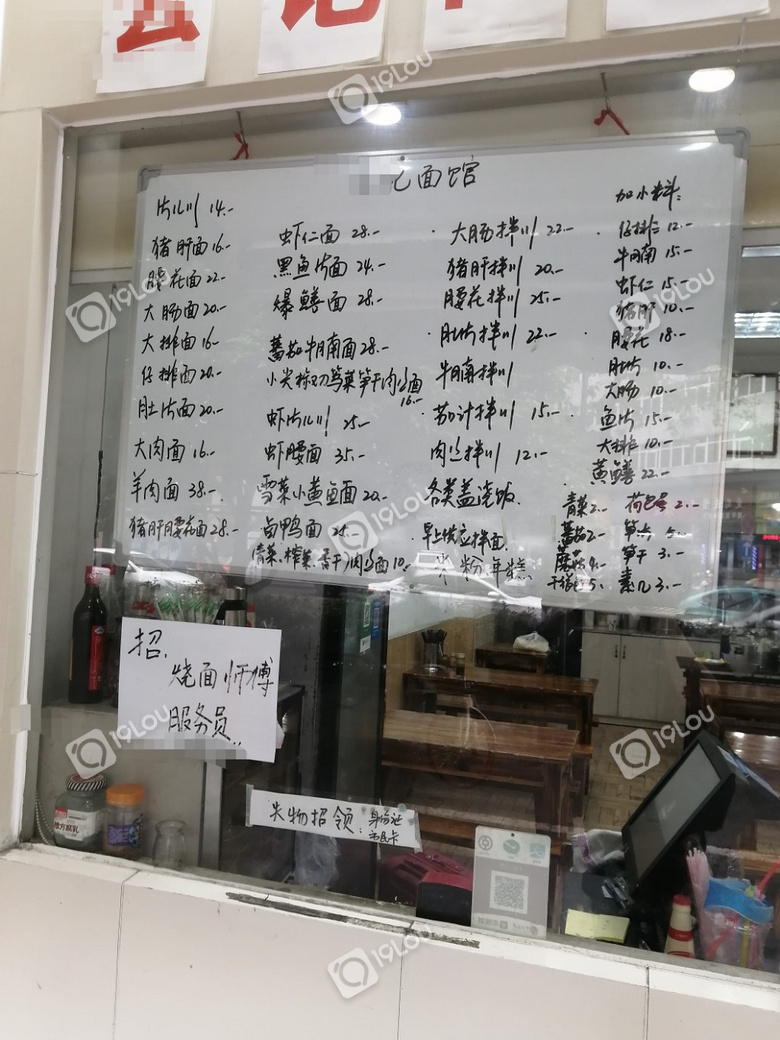 记面馆
片儿川 14.-
猪肝面 16.-
腰花面 22.-
大肠面 20.-
大排面 16-
仔排面 20.-
肚片面 20.-
大肉面 16.-
羊肉面 38.-
猪肝腰花面 28.-
虾仁面 28.-
黑鱼片面 24.-
爆鳝面 28.-
蕃茄牛腩面 28.-
小尖椒 笋干肉丝面
16.-
虾片儿川 25.-
虾腰面 35.-
雪菜小黄鱼面 20.-
卤鸭面 25.-
青菜、榨菜、香干肉丝面 10.-
大肠拌川 22.-
猪肝拌川 20.-
腰花拌川 25.-
肚片拌川 22.-
牛腩拌川
茄汁拌川 15.-
肉丝拌川 12.-
各类盖浇饭
早上供应拌面
米粉年糕
加小料:
仔排 12.-
牛腩 15.-
虾仁 15.-
猪肝 10.-
腰花 18.-
肚片 10.-
大肠 10.-
鱼片 15.-
大排 10.-
黄鳝 22.-
青菜 2.- 荷包蛋 2.-
蕃茄 2.- 笋片 5.-
4.- 笋干 3.-
5.- 素几 3.-
招.
烧面师傅
服务员..
失物招领: 身份证
市民卡
19LOU
19LOU
19LOU
19LOU
19LOU
19LOU
19LOU